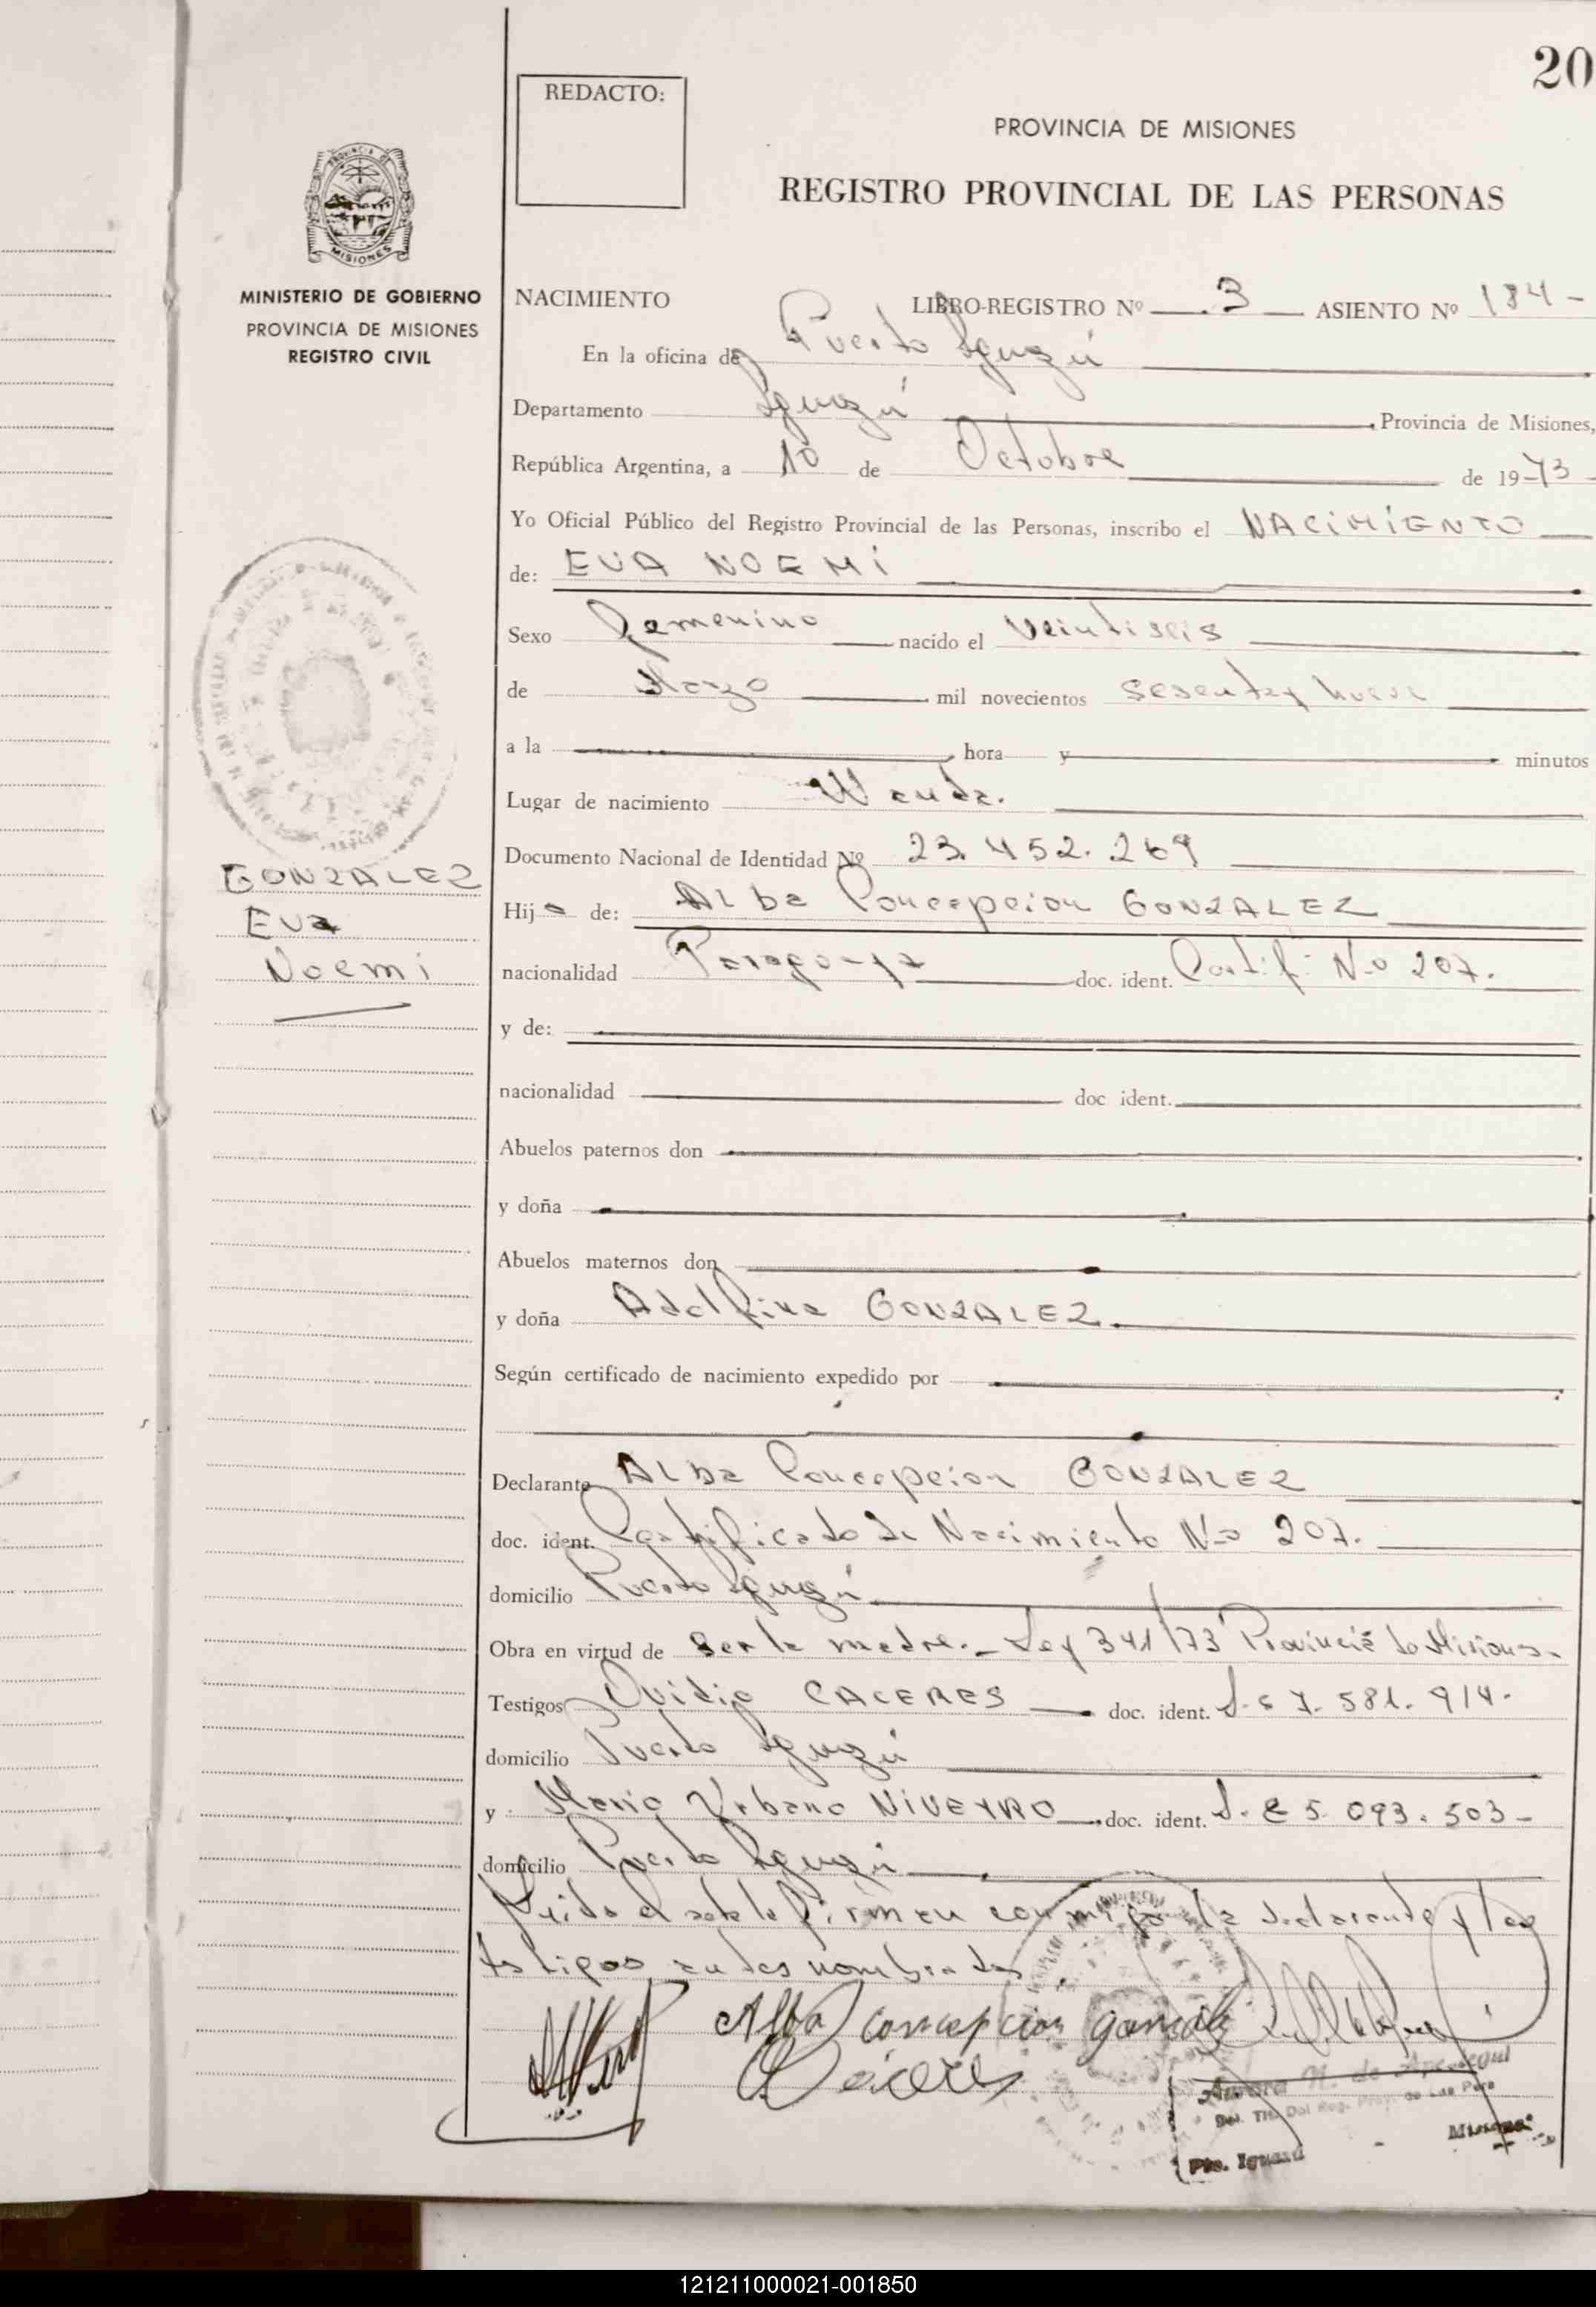 20
REDACTO:
PROVINCIA DE MISIONES
REGISTRO PROVINCIAL DE LAS PERSONAS
MISIONES
MINISTERIO DE GOBIERNO
PROVINCIA DE MISIONES
REGISTRO CIVIL
NACIMIENTO LIBRO-REGISTRO Nº 3 ASIENTO Nº 184 -
En la oficina de Puerto Iguazú
Departamento Iguazú Provincia de Misiones,
República Argentina, a 10 de Octubre de 1973
Yo Oficial Público del Registro Provincial de las Personas, inscribo el NACIMIENTO
de: EVA NOEMI
Sexo Femenino nacido el Veintiseis
de Marzo mil novecientos sesenta y nueve
a la hora y minutos
Lugar de nacimiento Wanda.
Documento Nacional de Identidad Nº 23.452.269
GONZALEZ
Eva
Noemi
Hija de: Alba Concepcion GONZALEZ
nacionalidad Paraguaya doc. ident. Certif. Nº 207.
y de:
nacionalidad doc ident.
Abuelos paternos don
y doña
Abuelos maternos don
y doña Adolfina GONZALEZ
Según certificado de nacimiento expedido por
Declarante Alba Concepcion GONZALEZ
doc. ident. Certificado de Nacimiento Nº 207.
domicilio Puerto Iguazú
Obra en virtud de Ser la madre. - Ley 341/73 Provincia de Misiones.
Testigos Ovidio CACERES doc. ident. 7.581.914.
domicilio Puerto Iguazú
y Mario Urbano NIVEYRO doc. ident. 5.093.503 -
domicilio Puerto Iguazú
Leida el acta la firman conmigo la declarante y los
testigos antes nombrados
Alba concepcion gonzalez
Caceres
Aurora N. de
Del. Tit. Del Reg. Prov. de Las Pers
Pto. Iguazú Misiones
121211000021-001850